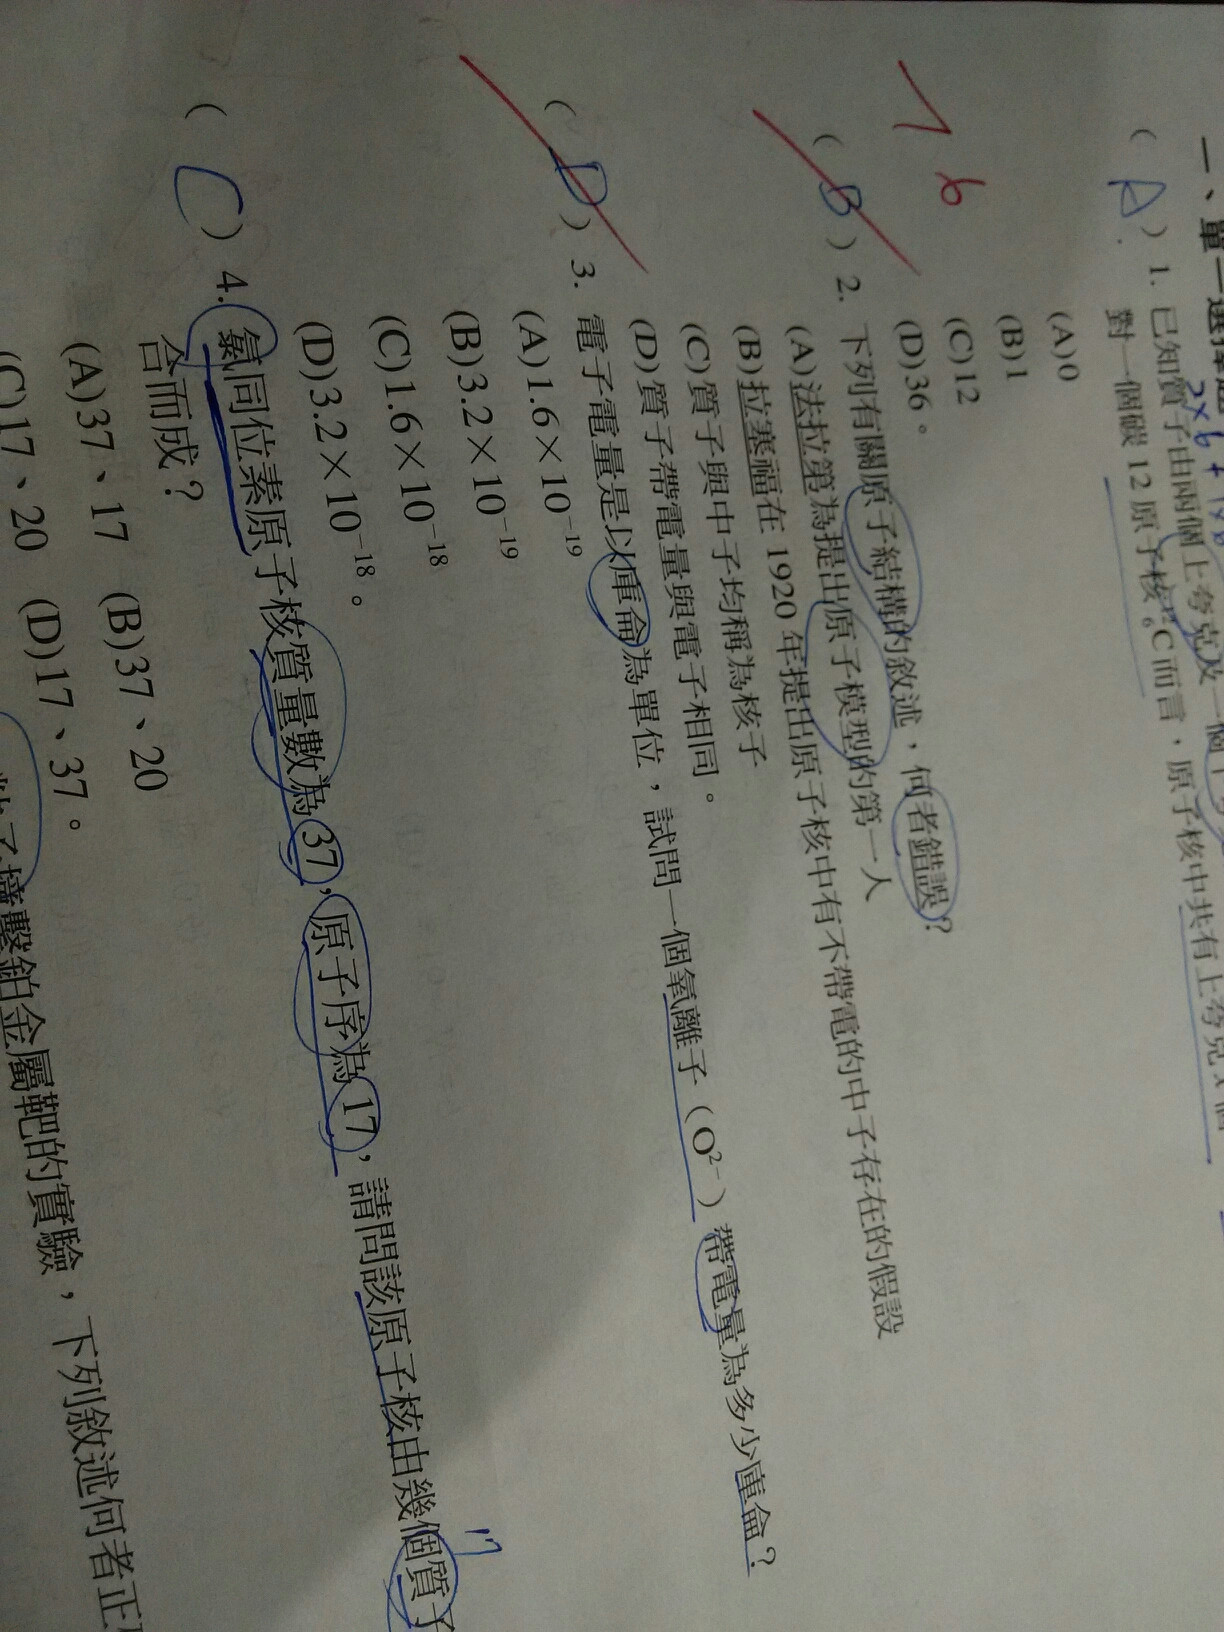 一、單一選擇題
2×6+1×6
( A ) 1. 已知質子由兩個上夸克及一個
對一個碳 12 原子核 ¹²₆C 而言，原子核中共有上夸克 x 個
(A)0
(B)1
(C)12
(D)36。
16
( B ) 2. 下列有關原子結構的敘述，何者錯誤？
(A)法拉第為提出原子模型的第一人
(B)拉塞福在 1920 年提出原子核中有不帶電的中子存在的假設
(C)質子與中子均稱為核子
(D)質子帶電量與電子相同。
( D ) 3. 電子電量是以庫侖為單位，試問一個氧離子（O²⁻）帶電量為多少庫侖？
(A)1.6×10⁻¹⁹
(B)3.2×10⁻¹⁹
(C)1.6×10⁻¹⁸
(D)3.2×10⁻¹⁸。
17
( C ) 4. 氯同位素原子核質量數為 37，原子序為 17，請問該原子核由幾個質子
合而成？
(A)37、17 (B)37、20
(C)17、20 (D)17、37。
粒子撞擊鉑金屬靶的實驗，下列敘述何者正